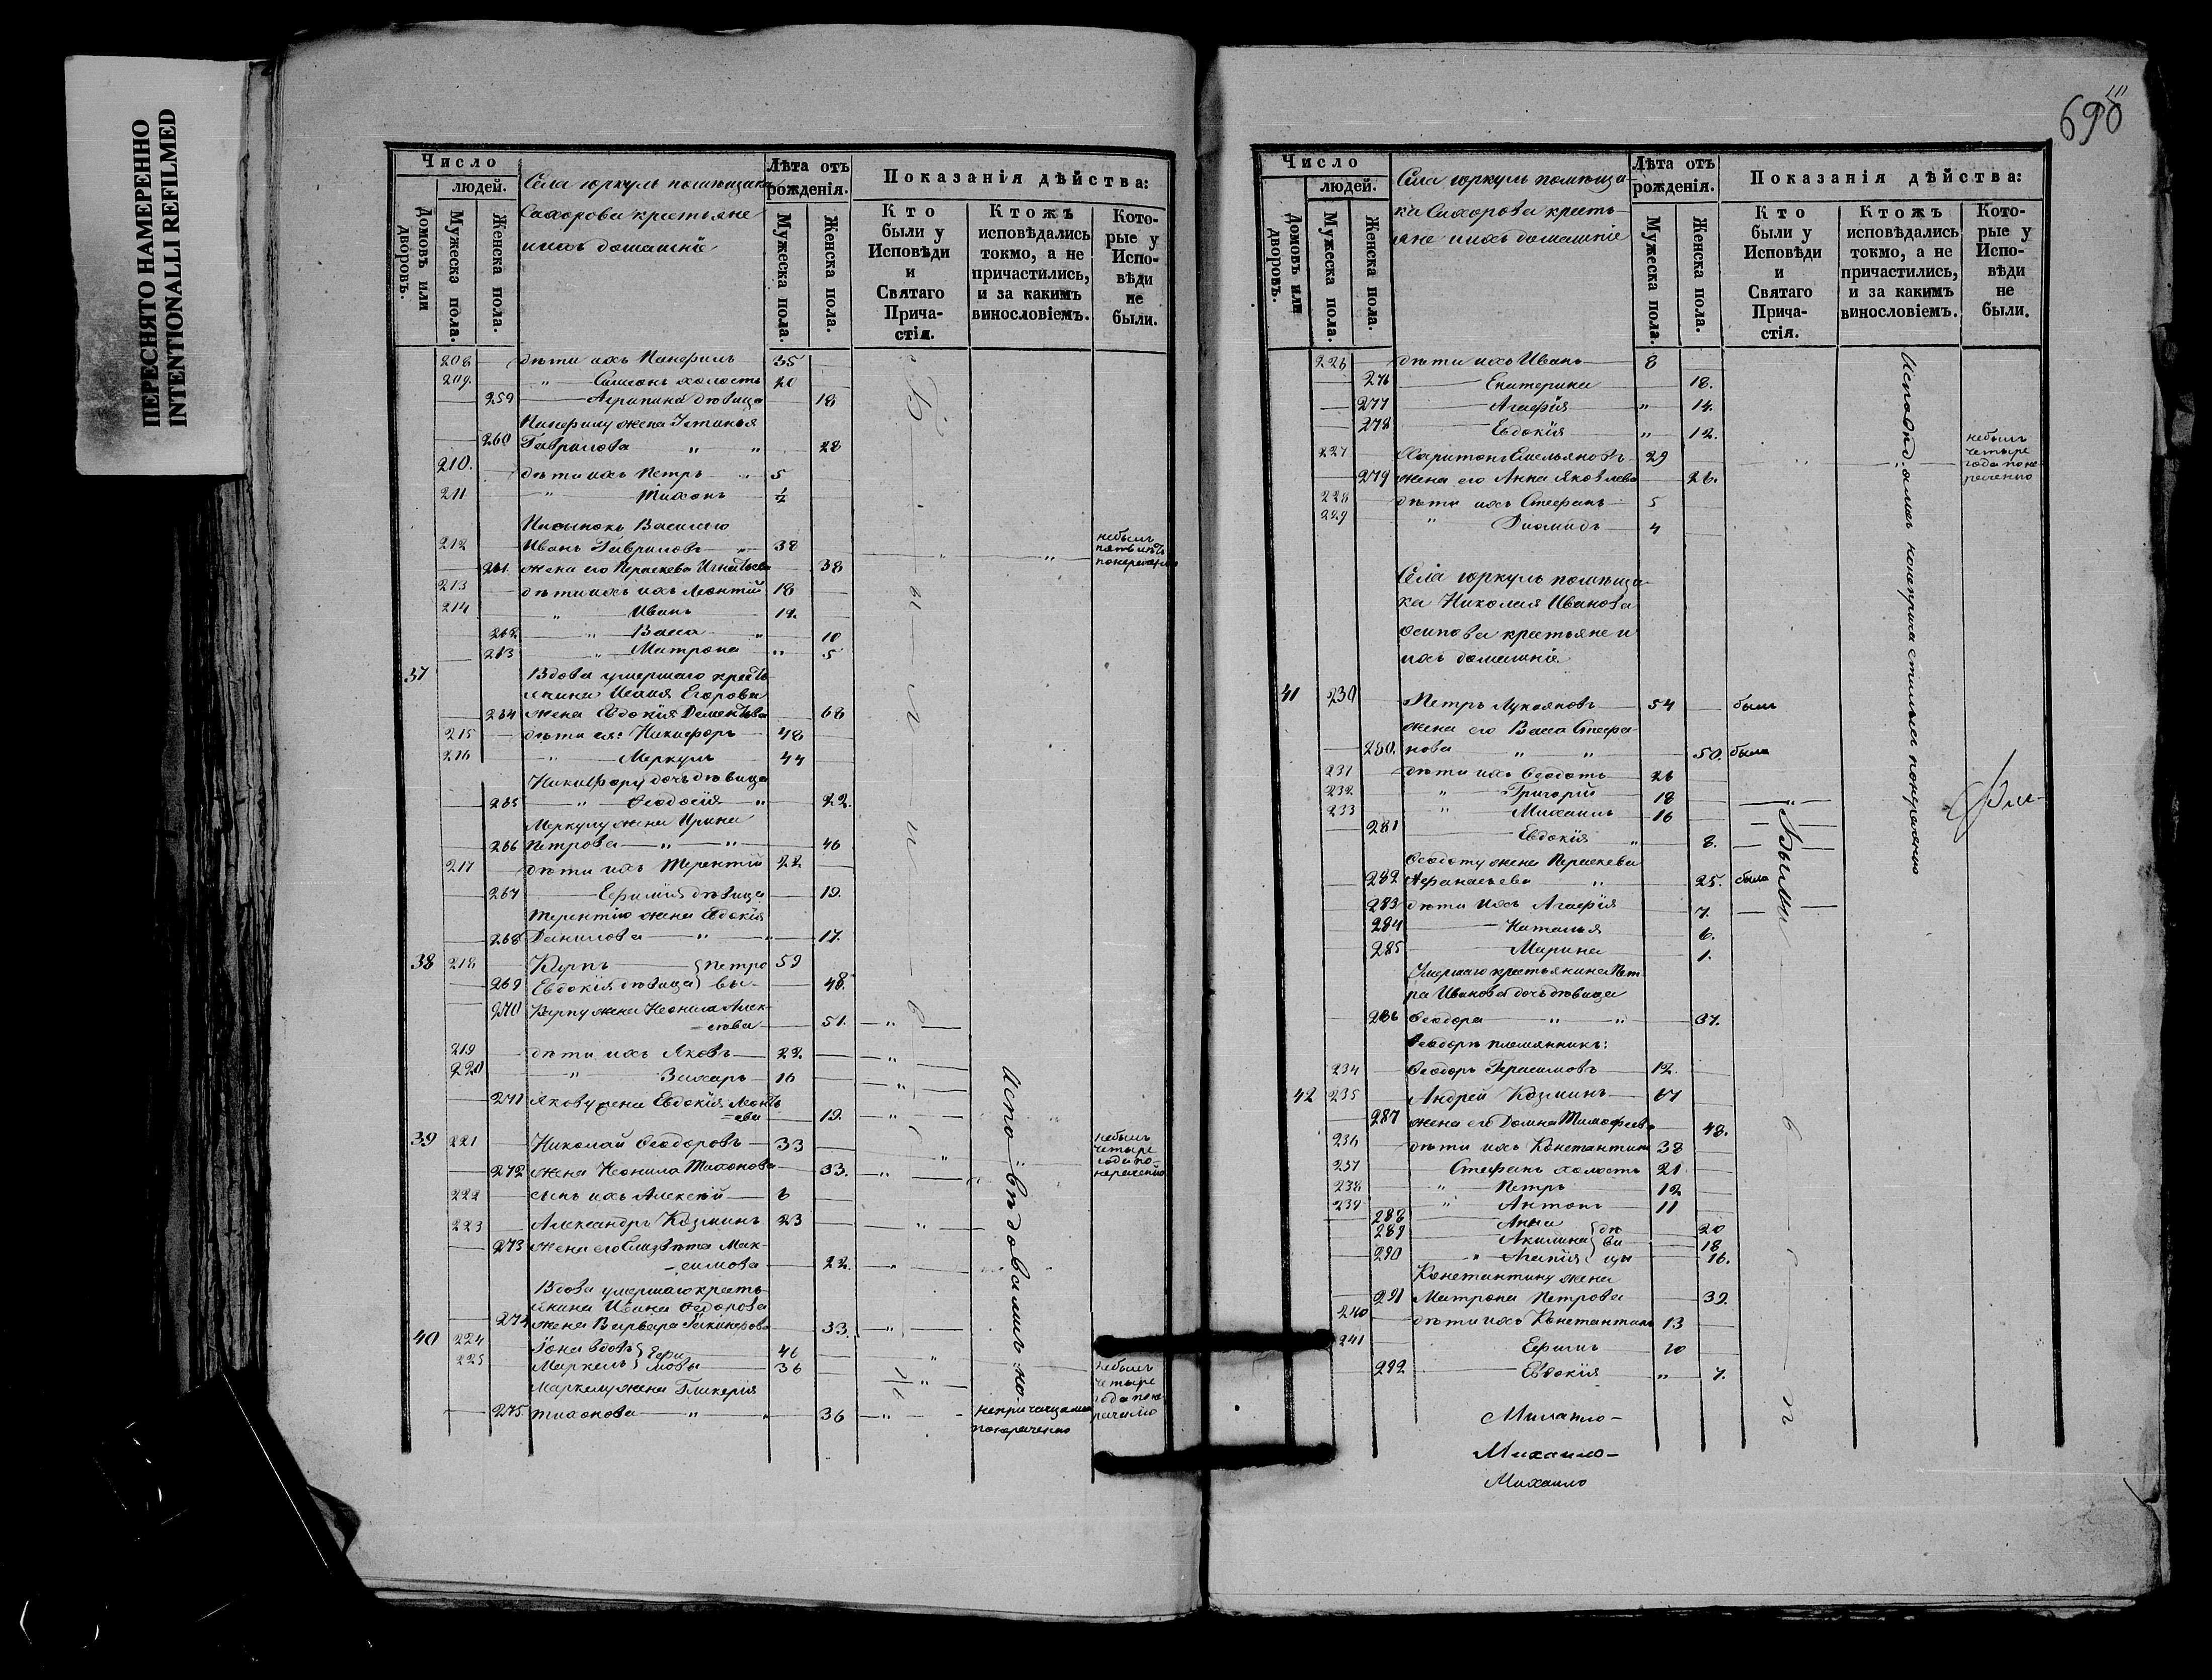 ПЕРЕСНЯТО НАМЕРЕННО
INTENTIONALLI REFILMED
Число
людей.
Домовъ или дворовъ.
Мужеска пола.
Женска пола.
Села юркуль помѣщика
Сахорова крестьяне
и ихъ домашніе
Лѣта отъ рожденія.
Мужеска пола.
Женска пола.
Показанія дѣйства:
Кто были у Исповѣди и Святаго Прича-стія.
Ктожъ исповѣдались токмо, а не причастились, и за какимъ винословіемъ.
Кото-рые у Испо-вѣди не были.
208 дѣти ихъ Панфилъ 35
209. " Симеонъ холостъ 20
259 Агрипина дѣвица 18
Панфилу жена Устинья
260 Гаврилова " " 28
210. дѣти ихъ Петръ " 5
211 " Тихонъ ½
Пасынокъ Василию
212 Иванъ Гавриловъ " 38 " " небылъ пять лѣтъ понерачению
261. жена его Параскева Игнатьева 38
213 дѣти ихъ Леонтий 18
214 " Иванъ 12.
262 " Васса " 10
263 " Матрона " 5
37 Вдова умершаго кресть
янина Исаия Егорова
264 жена Евдокия Дементьева 68
215 дѣти ея: Никифоръ 48
216 " Меркулъ 44
Никифору дочь дѣвица
265 " Феодосия " 22.
Меркулу жена Ирина
266 Петрова " " 46
217 дѣти ихъ Терентий 22
267 Ефимия дѣвица 19.
Терентию жена Евдокия
268 Данилова " " 17.
38 218 Карпъ } Петро 59
269 Евдокия дѣвица } вы 48.
270 Карпу жена Неонила Алек-
сѣева 51. "
219 дѣти ихъ Яковъ 22 "
220 " Захаръ 16 "
271 Якову жена Евдокия Леонть
ева 19. "
39 221 Николай Феодоровъ 33 " небылъ четыре года по-нерачению
272 жена Неонила Тихонова 33. "
222 сынъ ихъ Алексѣй 6
223 Александръ Козминъ 23 "
273 жена его Елизавѣта Мак-
симова 22. "
Вдова умершаго кресть-
янина Ивана Федорова
274 жена Варвара 33. "
40 224 Iона вдовъ } Ефи 46 "
225 Маркелъ } мовы 36 " небылъ четыре года поне-рачению
Маркелу жена Гликерия
275. Тихонова " " 36 " непричащались понерачению
Были
Исповѣдовались но
690
Число
людей.
Домовъ или дворовъ.
Мужеска пола.
Женска пола.
Села юркуль помѣщи-
ка Сахорова кресть-
яне и ихъ домашніе
Лѣта отъ рожденія.
Мужеска пола.
Женска пола.
Показанія дѣйства:
Кто были у Исповѣди и Святаго Прича-стія.
Ктожъ исповѣдались токмо, а не причастились, и за какимъ винословіемъ.
Кото-рые у Испо-вѣди не были.
226 дѣти ихъ Иванъ 8
276 Екатерина 18.
277 Агафия " 14.
278 Евдокия " 12.
227 Харитонъ Емельяновъ 29 " " небылъ четыре года поне-рачению
279 жена его Анна Яковлева 26.
228 дѣти ихъ Стефанъ 5
229 " Диомидъ 4
Исповѣдовались но непричастились понерачению
Села юркуль помѣщи-
ка Николая Иванова
Осипова крестьяне и
ихъ домашніе
41 230 Петръ Лукояновъ 54 былъ
жена его Васса Стефа-
280. нова " " 50. была
231 дѣти ихъ Феодотъ 26
232 " Григорий 18 "
233 " Михаилъ 16
281 Евдокия " 8.
Феодоту жена Параскева
282 Афанасьева " 25. была
283 дѣти ихъ Агафия 7.
284 Наталья 6.
285 Марина 1.
Были
Умершаго крестьянина Пет
ра Иванова дочь дѣвица
286 Феодора " " 37.
Феодоръ племянникъ:
234 Феодоръ Герасимовъ 12.
42 235 Андрей Козминъ 67
287 жена его Домна Тимофеева 48.
236 дѣти ихъ Константинъ 38
237 Стефанъ холостъ 21
238 " Петръ 12
239 " Антонъ 11
288 Анна } дѣ 20
289 Акилина } ви 18
290 " Агапия } цы 16.
Константину жена
291 Матрона Петрова 39.
240 дѣти ихъ Константинъ 13
241 Ефимъ 10
292 Евдокия " 7.
Михаило-
Михаило-
Михаило